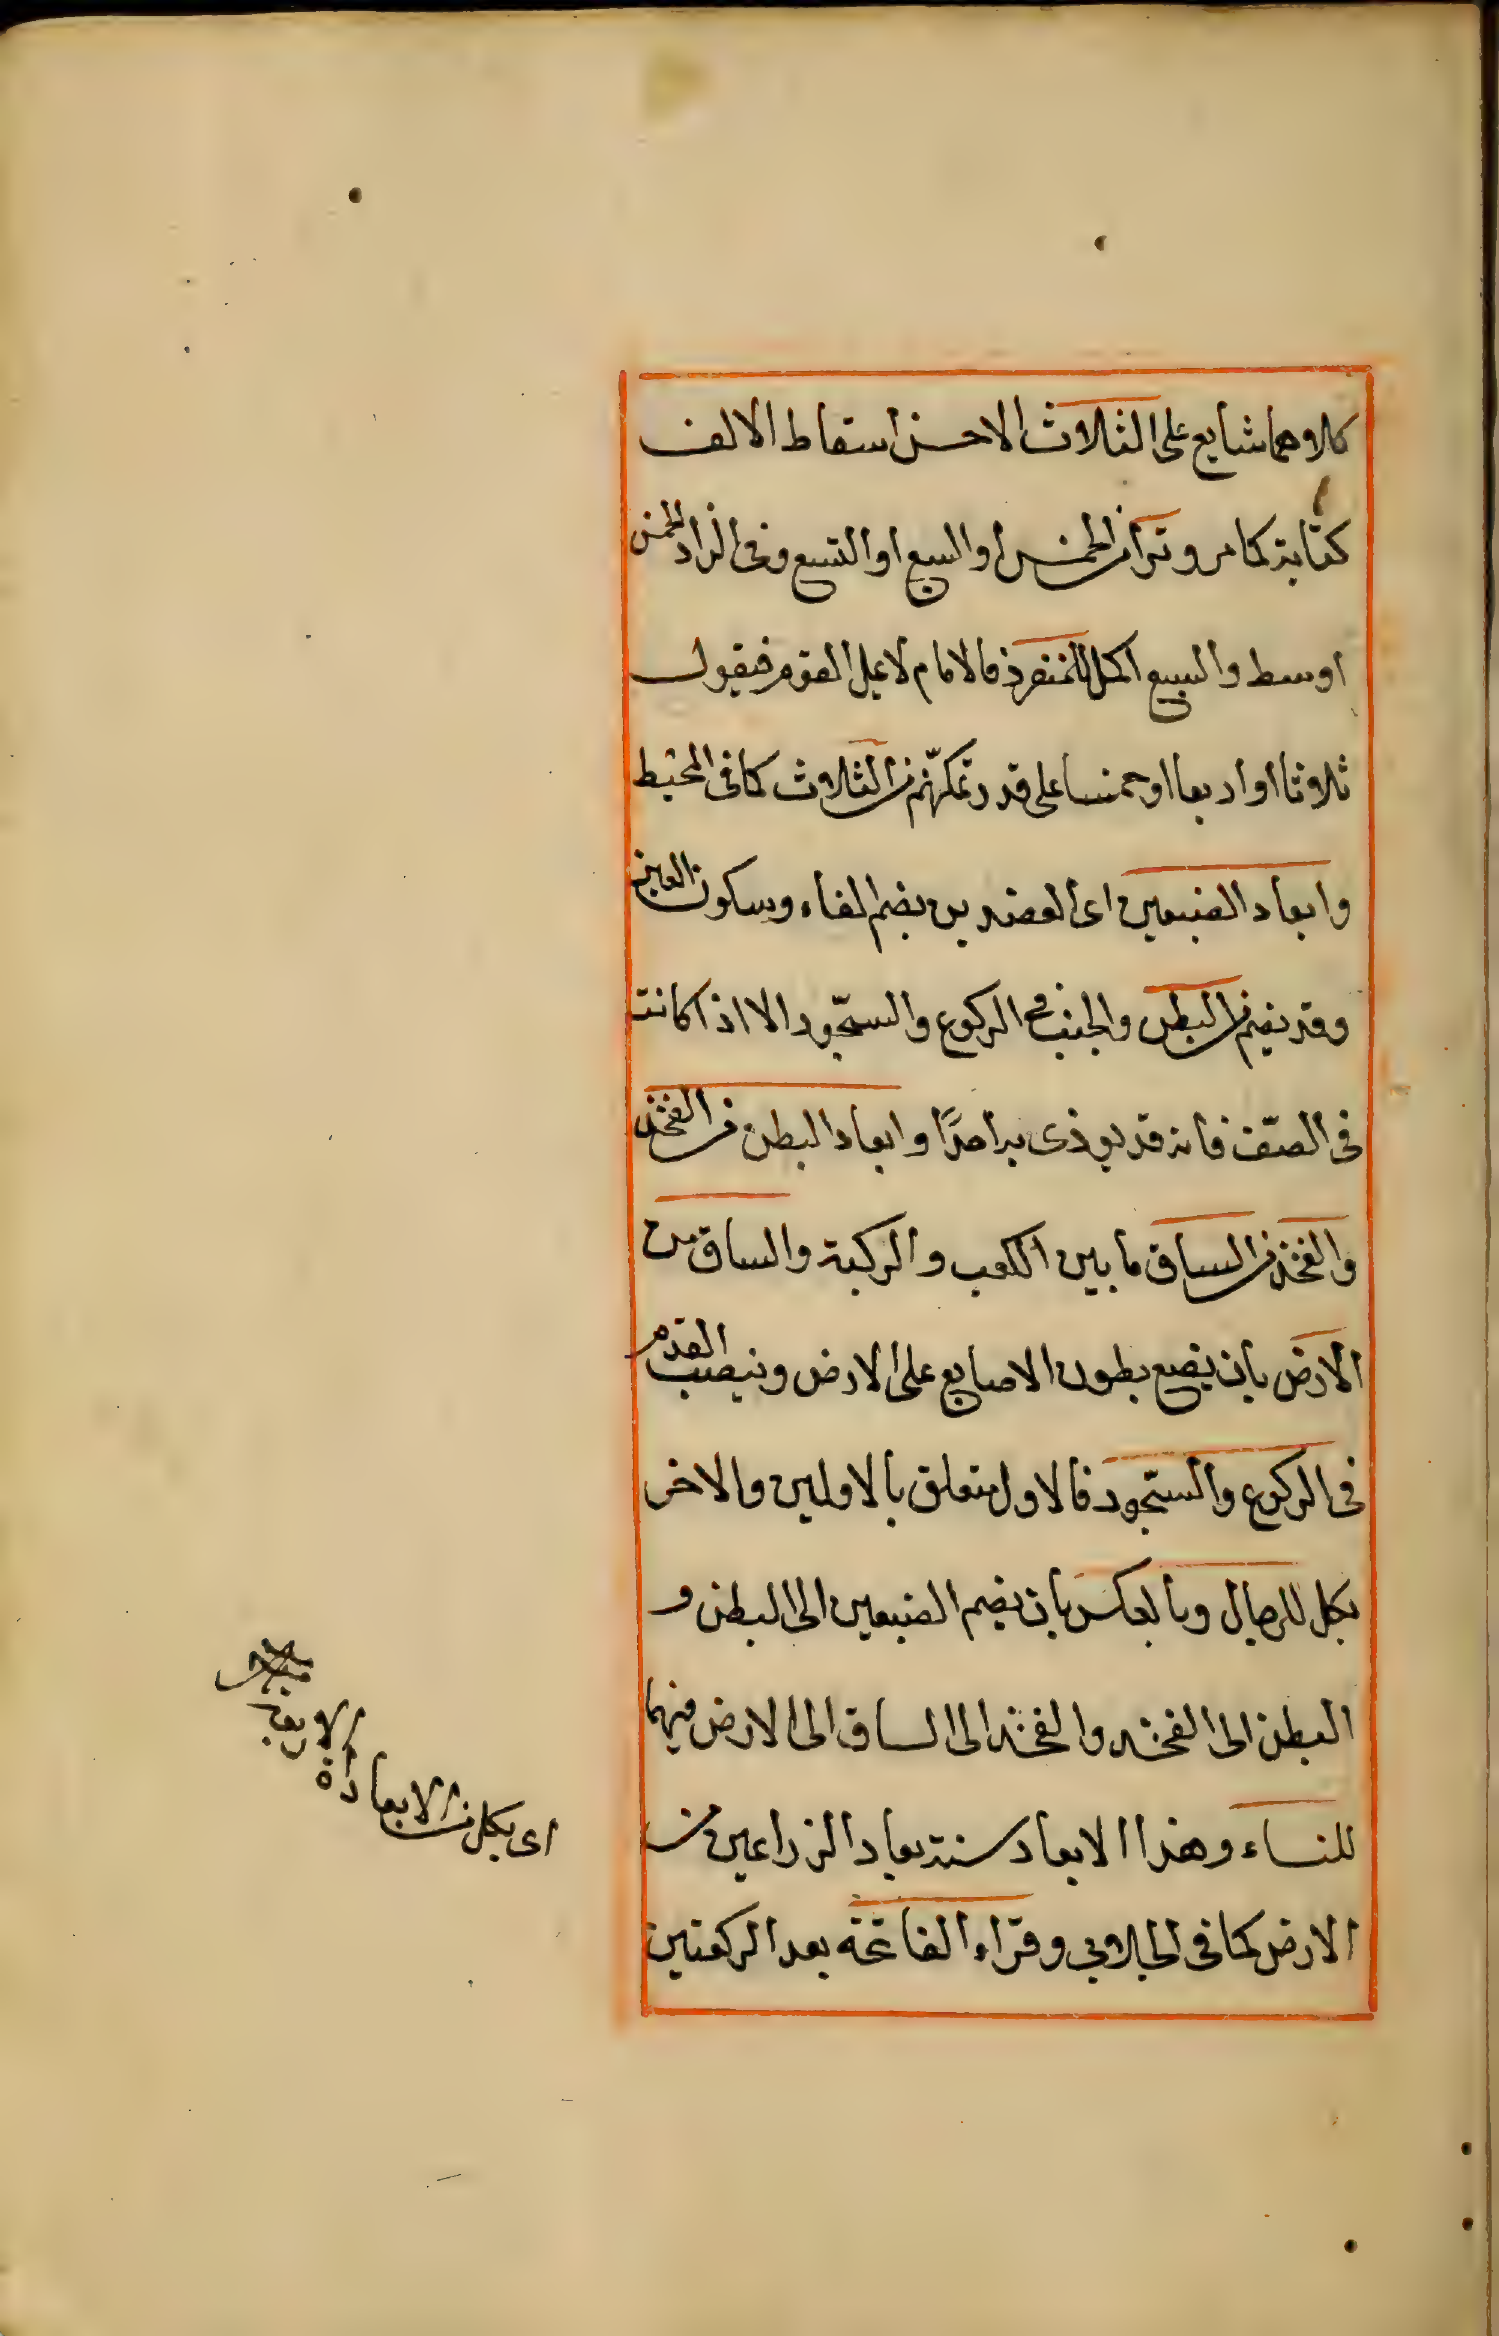 كلاهما شايع على الثلاث الاحسن اسقاط الالف
كتابة كما مر وترا من الخمس او السبع او التسع وفى الزاد الخمس
اوسط والسبع اكمل للمنفرد فالامام لا يمل القوم فيقول
ثلاثا او اربعا او خمسا على قدر تمكنهم من الثلاث كما فى المحيط
وابعاد الضبعين اى العضدين بضم الفاء وسكون العين
وقد يضم من البطن والجنب فى الركوع والسجود الا اذا كانت
فى الصف فانه قد يوذى به احدًا وابعاد البطن من الفخذ
والفخذ من الساق ما بين الكعب والركبة والساق من
الارض بان يضع بطون الاصابع على الارض وينصب القدم
فى الركوع والسجود فالاول متعلق بالاولين والاخر
بكل للرجال وبالعكس بان يضم الضبعين الى البطن و
البطن الى الفخذ والفخذ الى الساق الى الارض فيهما
للنساء وهذا الابعاد سنة بعاد الزراعين من
الارض كما فى الجلابى وقراء الفاتحة بعد الركعتين
اى بكل من الابعادة الاربعة